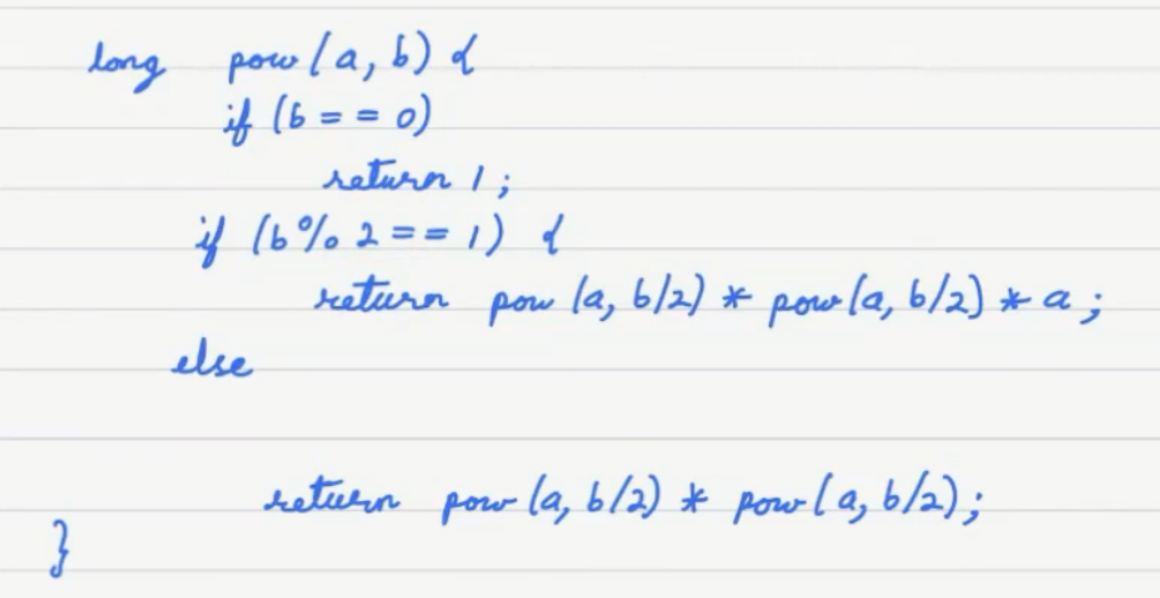 long pow(a, b) {
if (b == 0)
return 1;
if (b % 2 == 1) {
return pow(a, b/2) * pow(a, b/2) * a;
else
return pow(a, b/2) * pow(a, b/2);
}